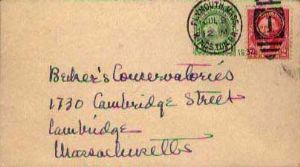 PLYMOUTH, MASS.
JUL 9
2 PM
KINGSTON
1932
1
Becker's Conservatories
1730 Cambridge Street
Cambridge
Massachusetts